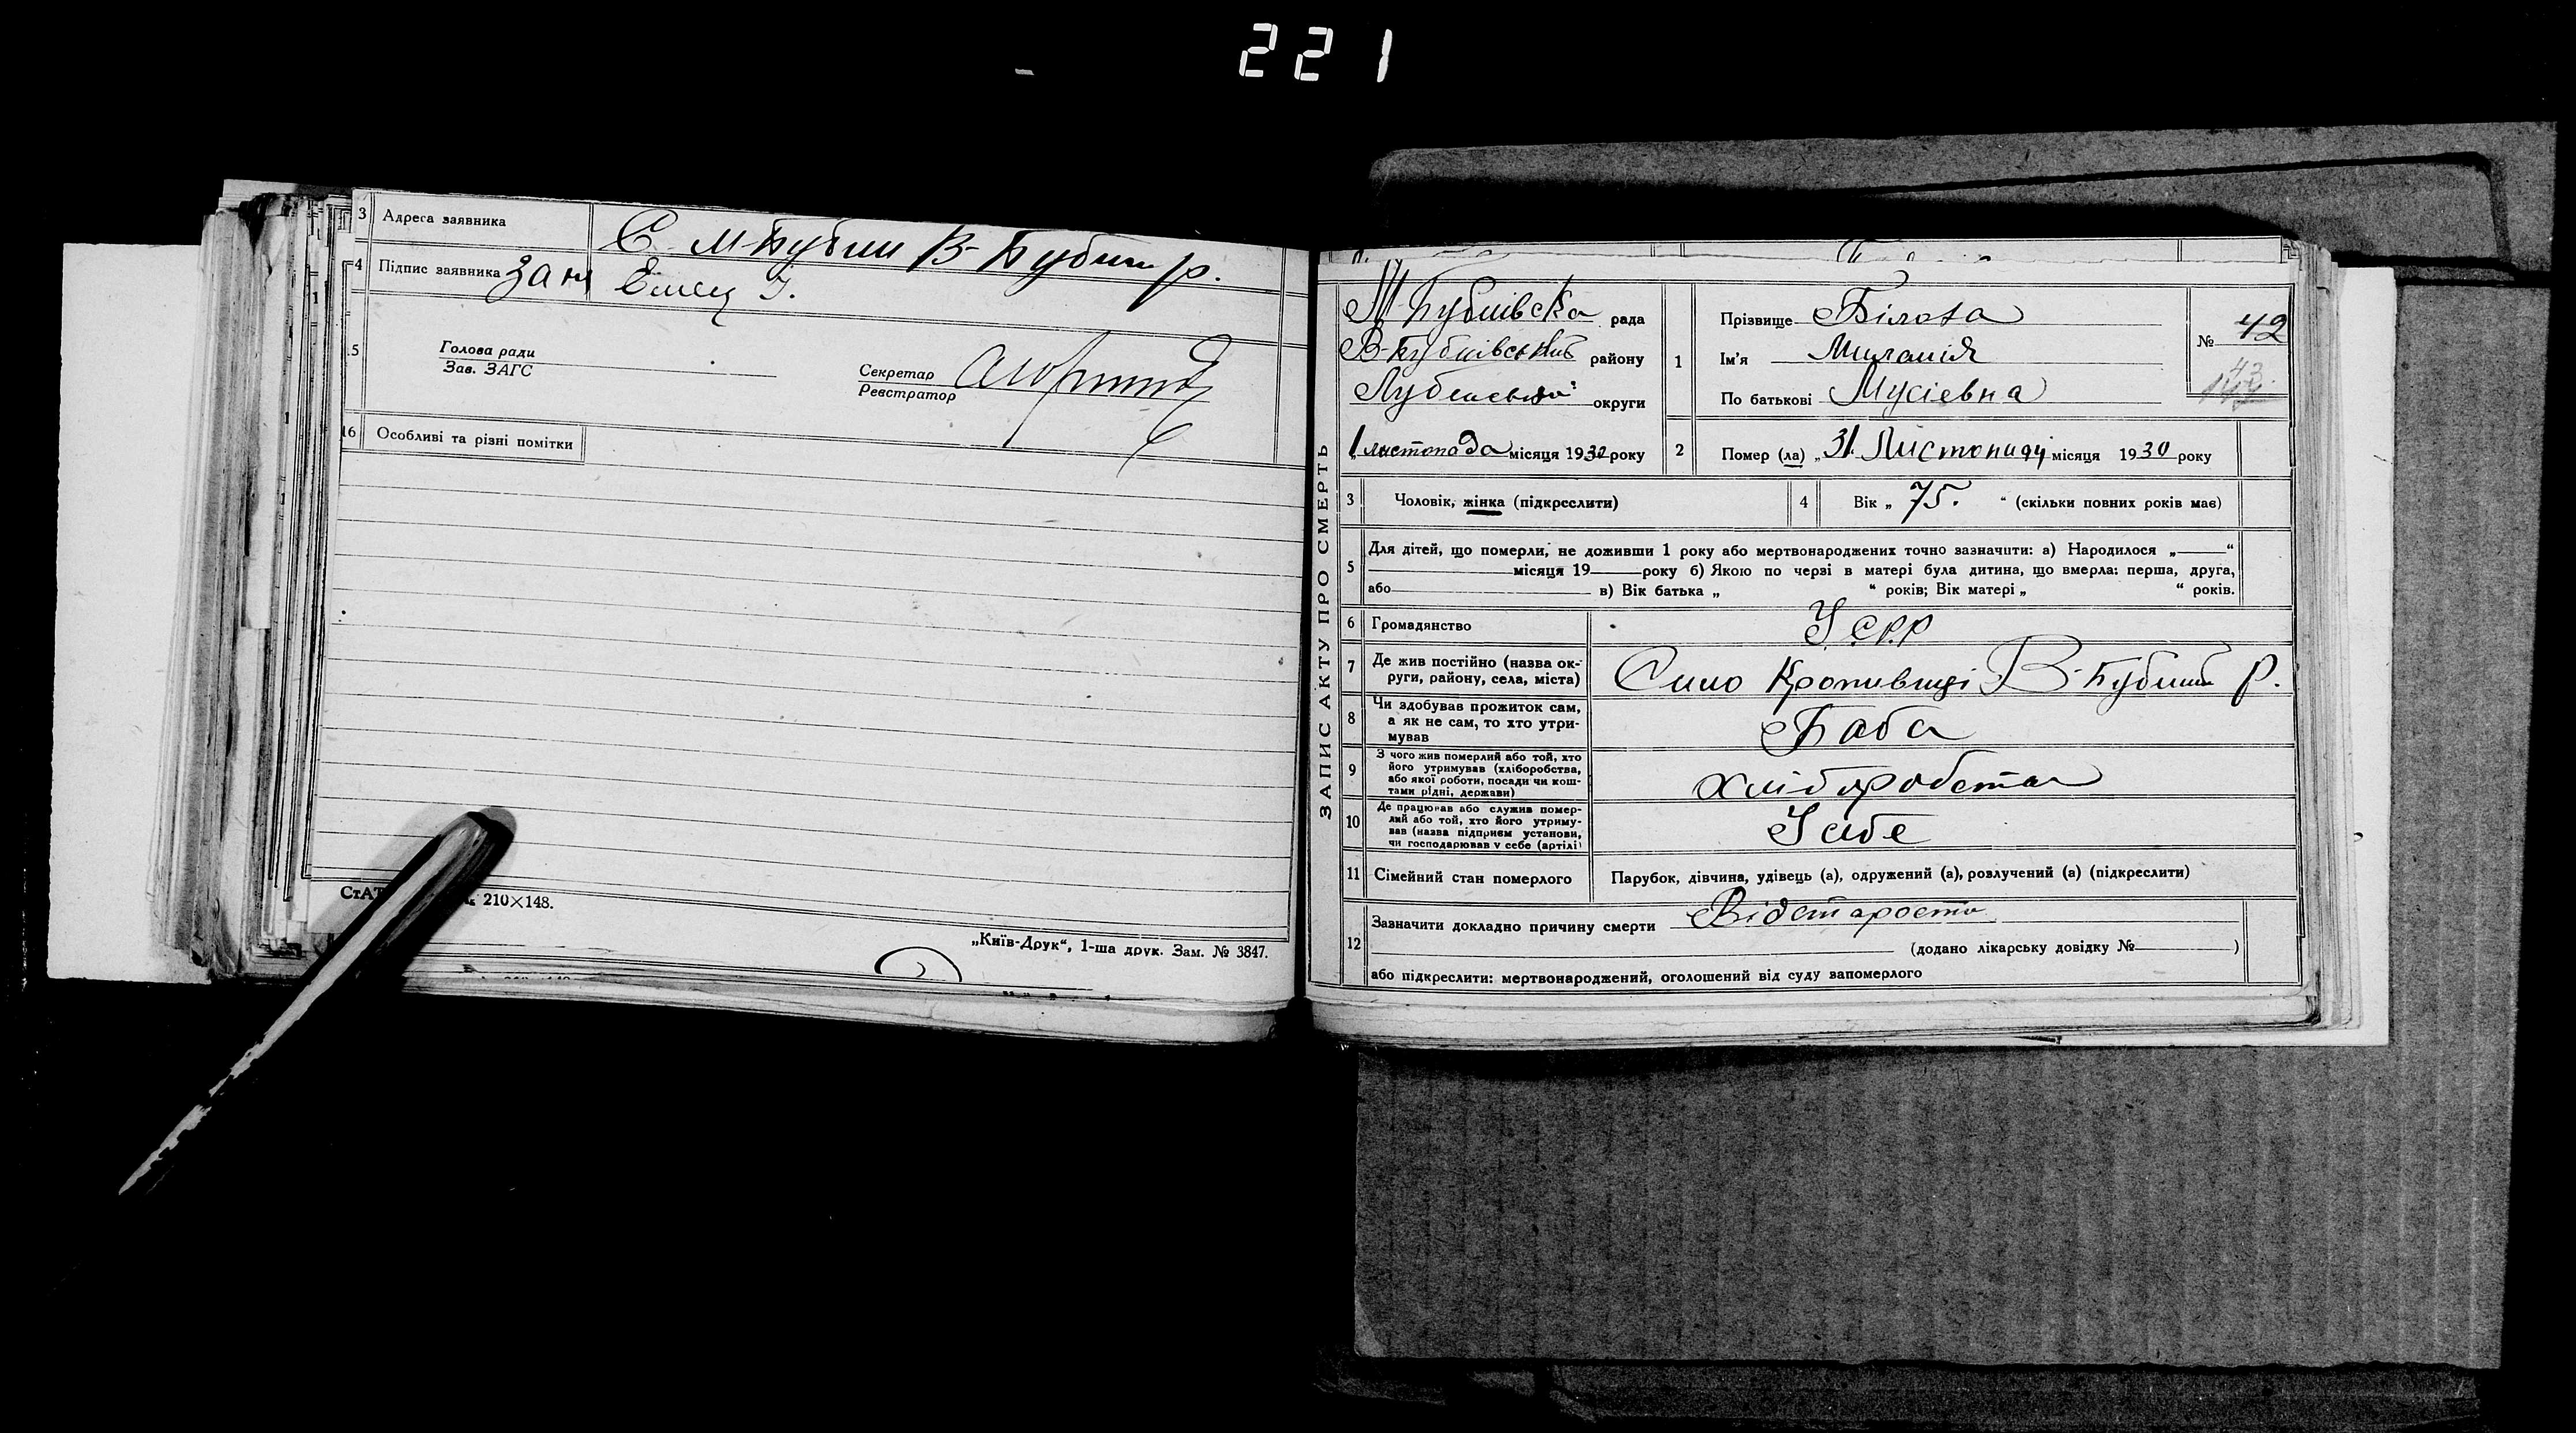 221
3 Адреса заявника С. М-Бубни В-Бубни р.
4 Підпис заявника за н Емец І.
15 Голова ради
Зав. ЗАГС
Секретар
Реєстратор
16 Особливі та різні помітки
210×148.
„Київ-Друк“, 1-ша друк. Зам. № 3847.
ЗАПИС АКТУ ПРО СМЕРТЬ
М Бубнівска рада
В-Бубнівський району
Лубенської округи
1 листопада місяця 1930 року
1 Прізвище Білоха
Ім'я Миланія
По батькові Мусіевна
№ 42
43
2 Помер (ла) „31. Листопаду місяця 1930 року
3 Чоловік, жінка (підкреслити)
4 Вік „75.“ (скільки повних років має)
5 Для дітей, що померли, не доживши 1 року або мертвонароджених точно зазначити: а) Народилося „ “
місяця 19 року б) Якою по черзі в матері була дитина, що вмерла: перша, друга,
або в) Вік батька „ “ років; Вік матері „ “ років.
6 Громадянство УСРР
7 Де жив постійно (назва ок-
руги, району, села, міста) Сило Кропивщі В-Бубни р.
8 Чи здобував прожиток сам,
а як не сам, то хто утри-
мував Баба
9 З чого жив померлий або той, хто
його утримував (хліборобства,
або якої роботи, посади чи кош-
тами рідні, держави) хліборобства
10 Де працював або служив помер-
лий або той, хто його утриму-
вав (назва підприєм установи,
чи господарював у себе (артілі) У себе
11 Сімейний стан померлого Парубок, дівчина, удівець (а), одружений (а), розлучений (а) (підкреслити)
12 Зазначити докладно причину смерти Відстарости
(додано лікарську довідку № )
або підкреслити: мертвонароджений, оголошений від суду запомерлого